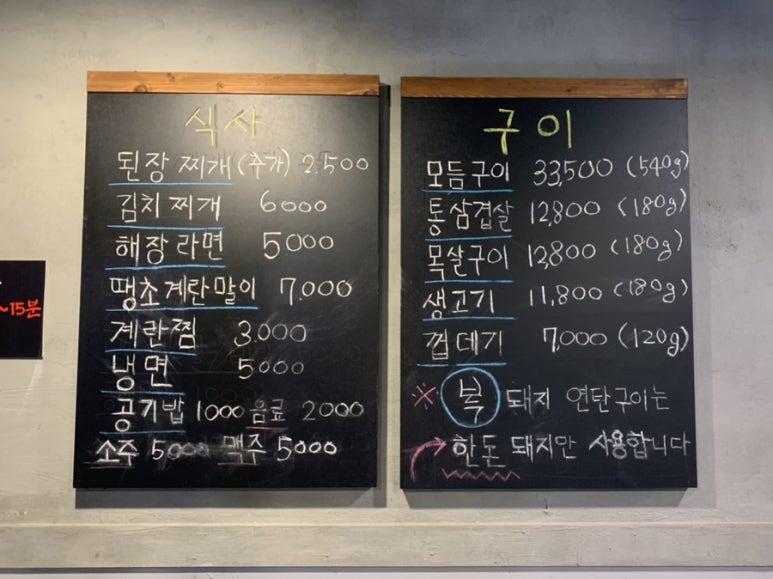 식사
된장 찌개 (추가) 2.500
김치 찌개 6000
해장 라면 5000
땡초계란말이 7.000
계란찜 3.000
냉면 5000
공기밥 1000 음료 2000
소주 5000 맥주 5000
구이
모듬구이 33,500 (540g)
통삼겹살 12,800 (180g)
목살구이 12,800 (180g)
생고기 11,800 (180g)
껍데기 7,000 (120g)
※ 복 돼지 연탄구이는
한돈 돼지만 사용합니다
~15분